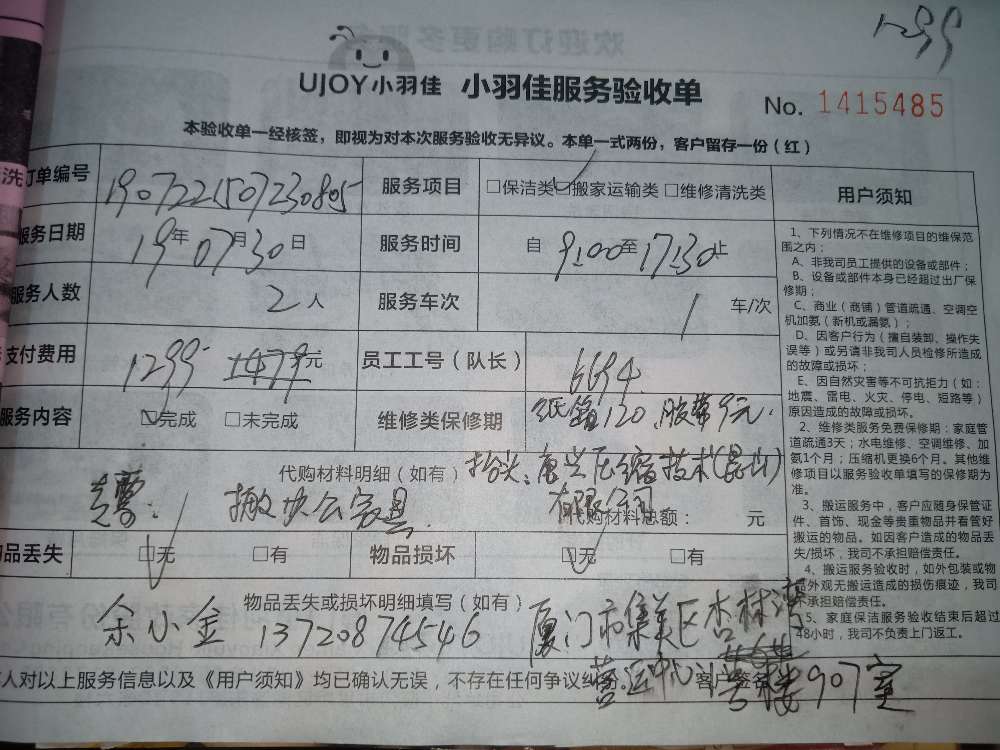 1299
UJOY小羽佳 小羽佳服务验收单 No. 1415485
本验收单一经核签，即视为对本次服务验收无异议。本单一式两份，客户留存一份（红）
洗
订单编号 1907221507230805 服务项目 □保洁类 □搬家运输类 □维修清洗类 用户须知
服务日期 19年07月30日 服务时间 自9:00至17:30止
服务人数 2人 服务车次 1 车/次
支付费用 1299 1479元 员工工号（队长） 6694
服务内容 □完成 □未完成 维修类保修期 纸箱120、胶带9元.
代购材料明细（如有） 抬头：康兴压缩技术(昆山)
发票： 搬办公家具 有限公司
代购材料总额： 元
物品丢失 □无 □有 物品损坏 □无 □有
物品丢失或损坏明细填写（如有）
余小金 13720874546 厦门市集美区杏林湾
营运中心 号楼907室
人对以上服务信息以及《用户须知》均已确认无误，不存在任何争议纠纷。 客户签名
1、下列情况不在维修项目的维保范
围之内；
A、非我司员工提供的设备或部件；
B、设备或部件本身已经超过出厂保
修期；
C、商业（商铺）管道疏通、空调空
机加氨（新机或漏氨）；
D、因客户行为（擅自装卸、操作失
误等）或另请非我司人员检修所造成
的故障或损坏；
E、因自然灾害等不可抗拒力（如：
地震、雷电、火灾、停电、短路等）
原因造成的故障或损坏。
2、维修类服务免费保修期：家庭管
道疏通3天；水电维修、空调维修、加
氨1个月；压缩机更换6个月。其他维
修项目以服务验收单填写的保修期为
准。
3、搬运服务中，客户应随身保管证
件、首饰、现金等贵重物品并看管好
搬运的物品。如因客户造成的物品丢
失/损坏，我司不承担赔偿责任。
4、搬运服务验收时，如外包装或物
品外观无搬运造成的损伤痕迹，我司
不承担赔偿责任。
5、家庭保洁服务验收结束后超过
48小时，我司不负责上门返工。